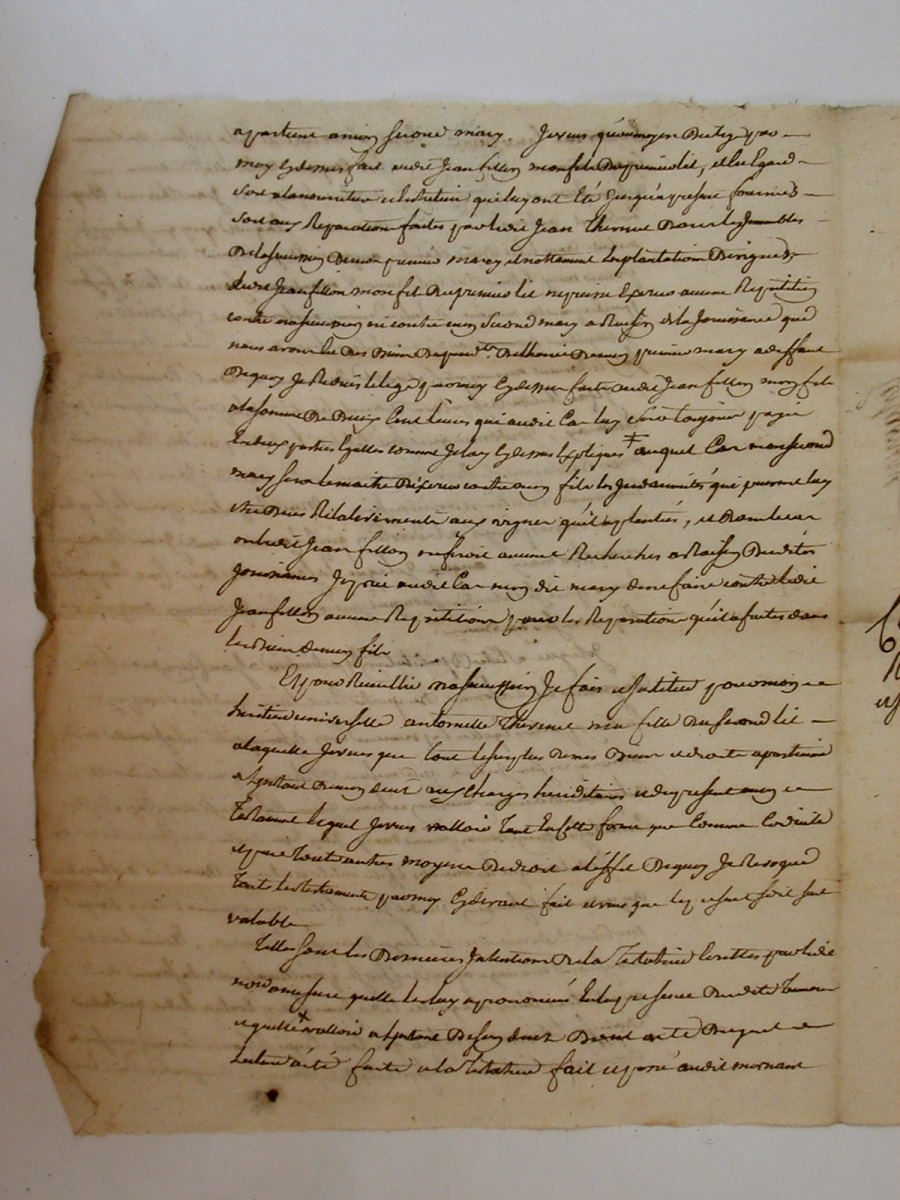 apartient a mon second mary. Je veux qu'au moyen du legs par
moy cydessus fait audit Jean fillon mon fils du premier lit, et les Egard
soit a la nourriture et Entretien quil luy ont Eté Jusqu'a present fournis
soit aux Reparations faites par ledit Jean Thevenet dans les Immeubles
De la succession de mon premier mary et nottament la plantation De vignes,
ledit Jean fillon mon fils du premier lit ne puisse Exercer aucune Repetition
contre ma succession ni contre mon second mary a Raison de la Jouissance que
nous avons Eu des Biens de mon premier mary a deffaut
De quoy Je Reduis le legs par moy cydessus fait audit Jean fillon mon fils
a la somme De Deux Cent livres qui audit Cas luy sera toujours payée
En deux parties Egalles comme Je l'ay cydessus Expliqué ‡ auquel Cas mon second
mary sera le maitre D'Exercer contre mon fils les Indemnités qui peuvent luy
etre Dues Relativement aux vignes qu'il a plantées, et Dans le cas
ou ledit Jean fillon ne feroit aucunes Recherches a Raison Desdites
Jouissances Je prie audit Cas mon dit mary de ne faire contre ledit
Jean fillon aucune Repetition pour les Reparations qu'il a faites dans
les Biens de mon fils
Et pour Recueillir ma succession Je fais et Institue pour mon
heritiere universelle antoinette Thevenet ma fille du second lit
a laquelle Je veux que tout le surplus de mes Biens et droits apartienne
a l'instant De mon decés aux Charges hereditaires et du present mon
Testament lequel Je veux valloir tant En cette forme que Comme Codicile
et par tout autres moyens De droit a l'effet De quoy Je Revoque
tout les testaments par moy Cydevant fait et veux que le present soit seul
valable
Telles sont les Dernieres Intentions de la Testatrice Ecrittes par ledit
no.re a mesure quelle les luy a prononcées En la presence Desdits Temoins
et quelle ‡ valloir a l'instant De son decés Dont acte Duquel
Lecture a été faite a la Testatrice fait et passé audit mornant